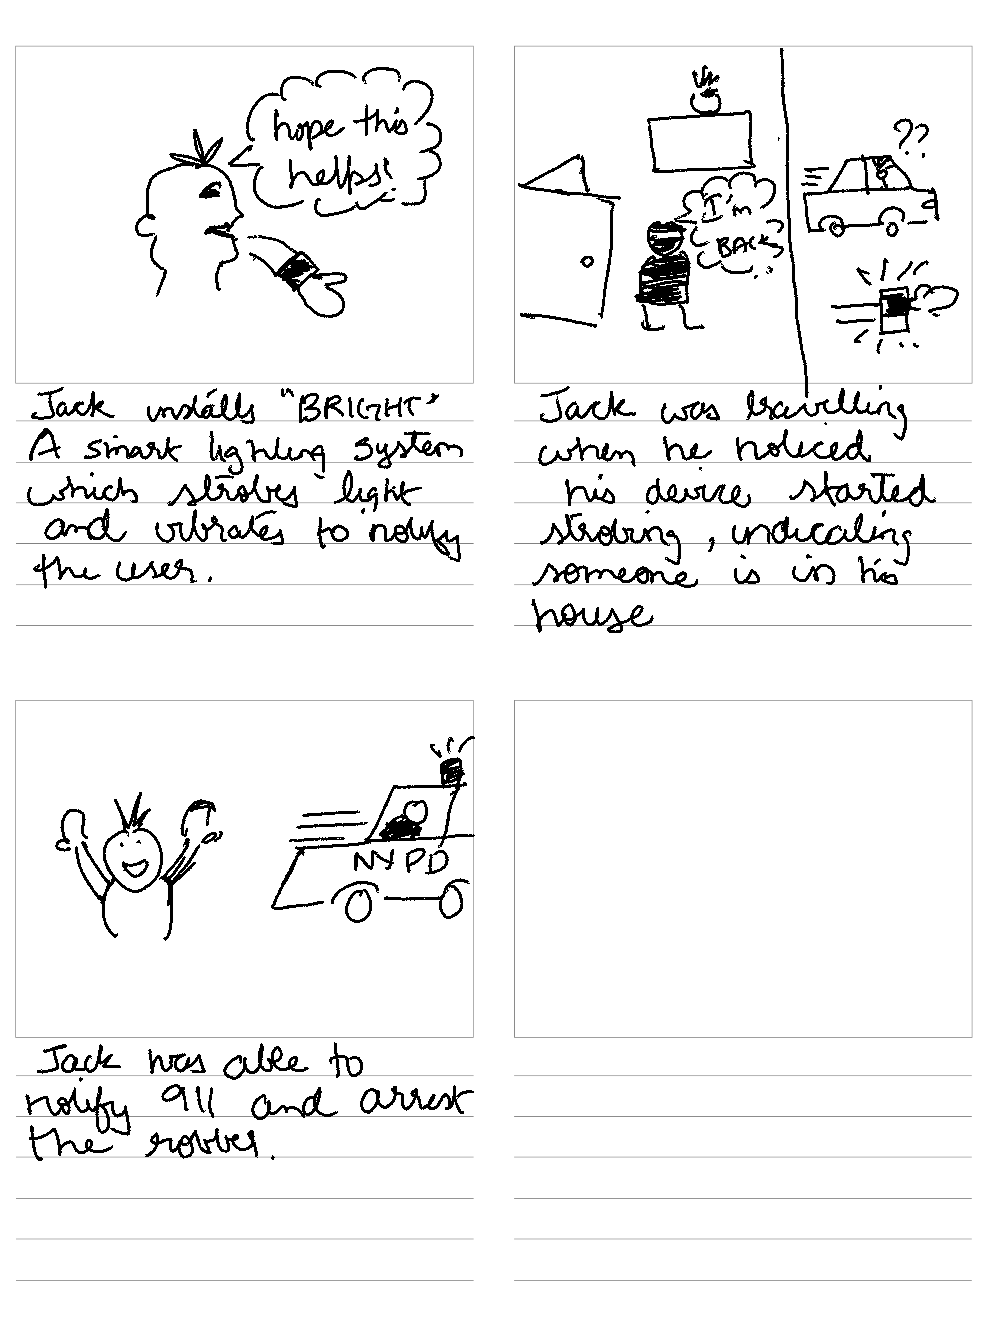 hope this
helps!
Jack installs "BRIGHT"
A smart lighting system
which strobes light
and vibrates to notify
the user.
I'm
BACK
??
Jack was travelling
when he noticed
his device started
strobing, indicating
someone is in his
house
NYPD
Jack was able to
notify 911 and arrest
the robber.